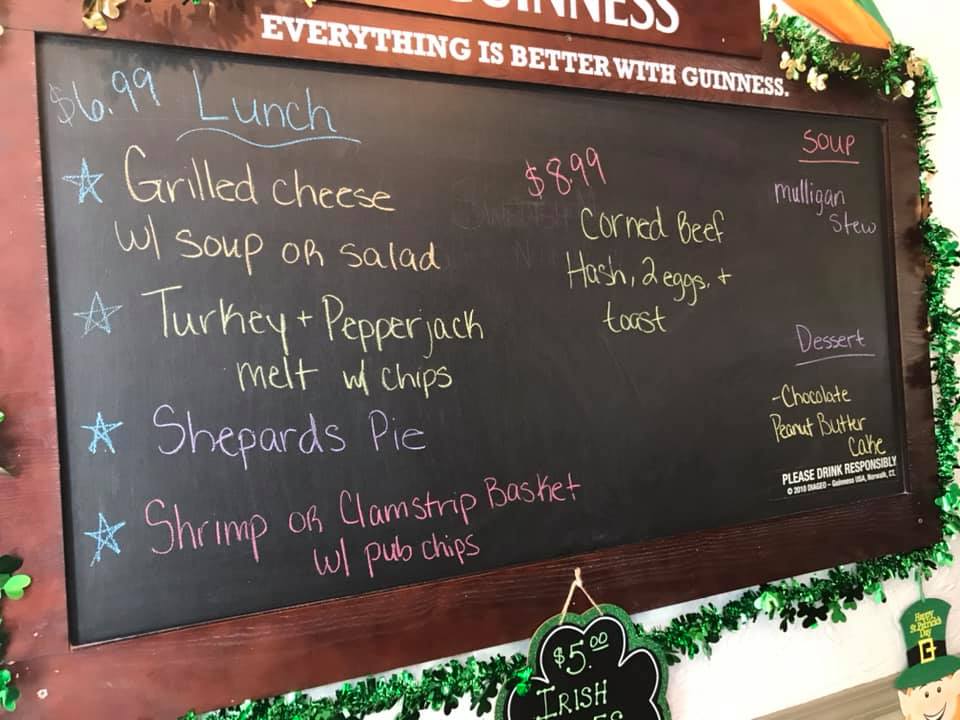 GUINNESS
EVERYTHING IS BETTER WITH GUINNESS.
$6.99 Lunch
Grilled cheese
w/ soup or salad
Turkey + Pepperjack
melt w/ chips
Shepards Pie
Shrimp or Clamstrip Basket
w/ pub chips
$8.99
Corned Beef
Hash, 2 eggs, +
toast
Soup
mulligan
Stew
Dessert
-Chocolate
Peanut Butter
Cake
PLEASE DRINK RESPONSIBLY
© 2010 DIAGEO – Guinness USA, Norwalk, CT.
$5.00
IRISH
Happy
St. Patrick's
Day